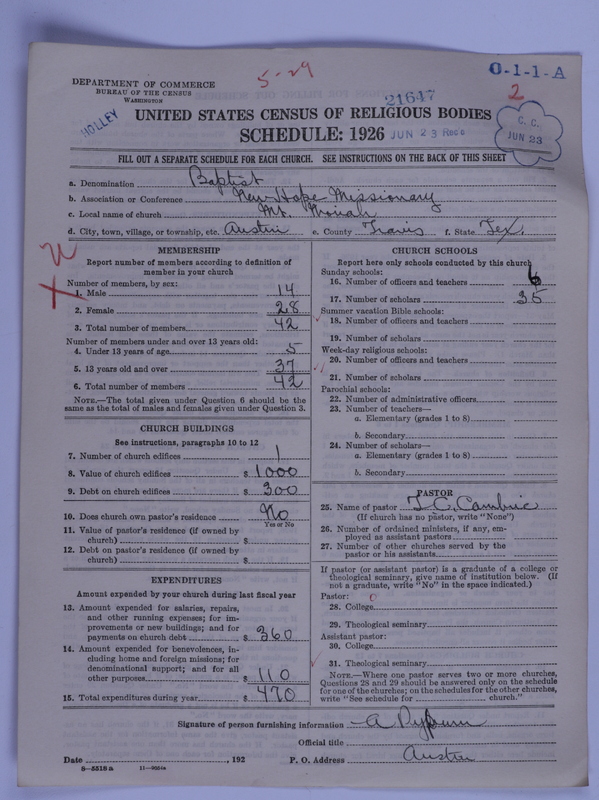 5-29
O-1-1-A
DEPARTMENT OF COMMERCE
BUREAU OF THE CENSUS
WASHINGTON
21647
2
HOLLEY
UNITED STATES CENSUS OF RELIGIOUS BODIES
SCHEDULE: 1926
JUN 23 Recd
C. C.
JUN 23
FILL OUT A SEPARATE SCHEDULE FOR EACH CHURCH. SEE INSTRUCTIONS ON THE BACK OF THIS SHEET
a. Denomination Baptist
b. Association or Conference New Hope Missionary
c. Local name of church Mt. Moriah
d. City, town, village, or township, etc. Austin e. County Travis f. State Tex.
MEMBERSHIP
Report number of members according to definition of
member in your church
Number of members, by sex:
1. Male 14
2. Female 28
3. Total number of members 42
Number of members under and over 13 years old:
4. Under 13 years of age 5
5. 13 years old and over 37
6. Total number of members 42
NOTE.—The total given under Question 6 should be the
same as the total of males and females given under Question 3.
CHURCH BUILDINGS
See instructions, paragraphs 10 to 12
7. Number of church edifices 1
8. Value of church edifices $ 1000
9. Debt on church edifices $ 300
10. Does church own pastor's residence No
Yes or No
11. Value of pastor's residence (if owned by
church) $
12. Debt on pastor's residence (if owned by
church) $
EXPENDITURES
Amount expended by your church during last fiscal year
13. Amount expended for salaries, repairs,
and other running expenses; for im-
provements or new buildings; and for
payments on church debt $ 360
14. Amount expended for benevolences, in-
cluding home and foreign missions; for
denominational support; and for all
other purposes $ 110
15. Total expenditures during year $ 470
CHURCH SCHOOLS
Report here only schools conducted by this church
Sunday schools:
16. Number of officers and teachers 6
17. Number of scholars 35
Summer vacation Bible schools:
18. Number of officers and teachers
19. Number of scholars
Week-day religious schools:
20. Number of officers and teachers
21. Number of scholars
Parochial schools:
22. Number of administrative officers
23. Number of teachers—
a. Elementary (grades 1 to 8)
b. Secondary
24. Number of scholars—
a. Elementary (grades 1 to 8)
b. Secondary
PASTOR
25. Name of pastor
(If church has no pastor, write "None")
26. Number of ordained ministers, if any, em-
ployed as assistant pastors
27. Number of other churches served by the
pastor or his assistants
If pastor (or assistant pastor) is a graduate of a college or
theological seminary, give name of institution below. (If
not a graduate, write "No" in the space indicated.)
Pastor:
28. College
29. Theological seminary
Assistant pastor:
30. College
31. Theological seminary
NOTE.—Where one pastor serves two or more churches,
Questions 28 and 29 should be answered only on the schedule
for one of the churches; on the schedules for the other churches,
write "See schedule for church."
Signature of person furnishing information
Official title
Date , 192 P. O. Address Austin
8-5518 a